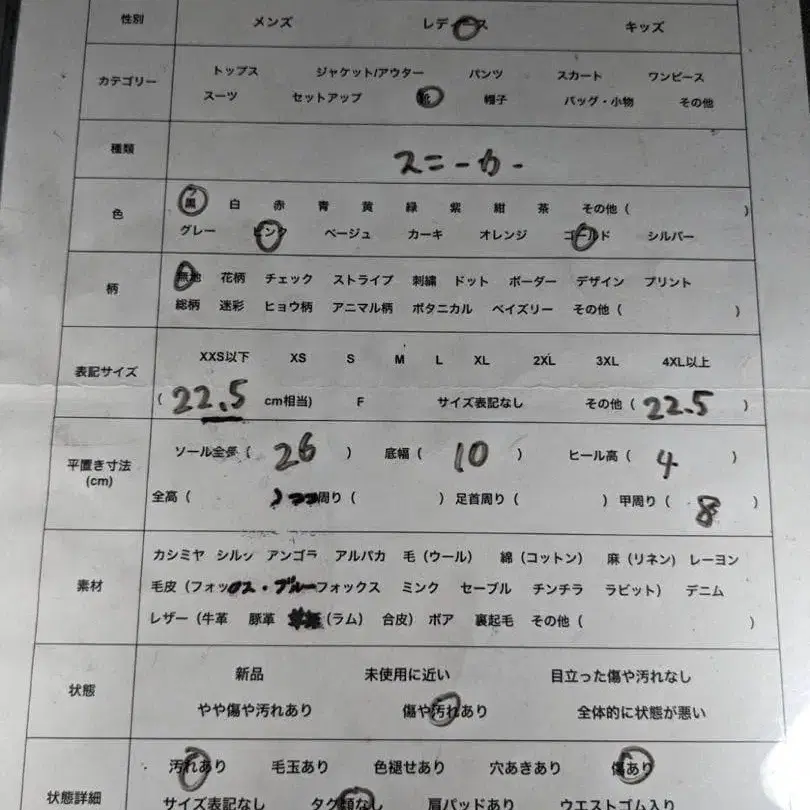 性別 メンズ レディース キッズ
カテゴリー トップス ジャケット/アウター パンツ スカート ワンピース
スーツ セットアップ 靴 帽子 バッグ・小物 その他
種類 スニーカー
色 黒 白 赤 青 黄 緑 紫 紺 茶 その他 ( )
グレー ピンク ベージュ カーキ オレンジ ゴールド シルバー
柄 無地 花柄 チェック ストライプ 刺繍 ドット ボーダー デザイン プリント
総柄 迷彩 ヒョウ柄 アニマル柄 ボタニカル ペイズリー その他 ( )
表記サイズ XXS以下 XS S M L XL 2XL 3XL 4XL以上
( 22.5 cm相当) F サイズ表記なし その他 ( 22.5 )
平置き寸法 (cm) ソール全長 ( 26 ) 底幅 ( 10 ) ヒール高 ( 4 )
全高 ( ) 周り ( ) 足首周り ( ) 甲周り ( 8 )
素材 カシミヤ シルク アンゴラ アルパカ 毛 (ウール) 綿 (コットン) 麻 (リネン) レーヨン
毛皮 (フォックス・ブルーフォックス ミンク セーブル チンチラ ラビット) デニム
レザー (牛革 豚革 (ラム) 合皮) ボア 裏起毛 その他 ( )
状態 新品 未使用に近い 目立った傷や汚れなし
やや傷や汚れあり 傷や汚れあり 全体的に状態が悪い
状態詳細 汚れあり 毛玉あり 色褪せあり 穴あきあり 傷あり
サイズ表記なし タグ類なし 肩パッドあり ウエストゴム入り